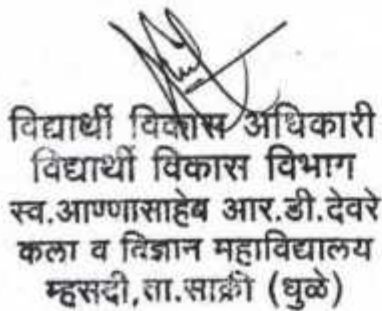 विद्यार्थी विकास अधिकारी
विद्यार्थी विकास विभाग
स्व.आण्णासाहेब आर.डी.देवरे
कला व विज्ञान महाविद्यालय
म्हसदी,ता.साक्री (धुळे)